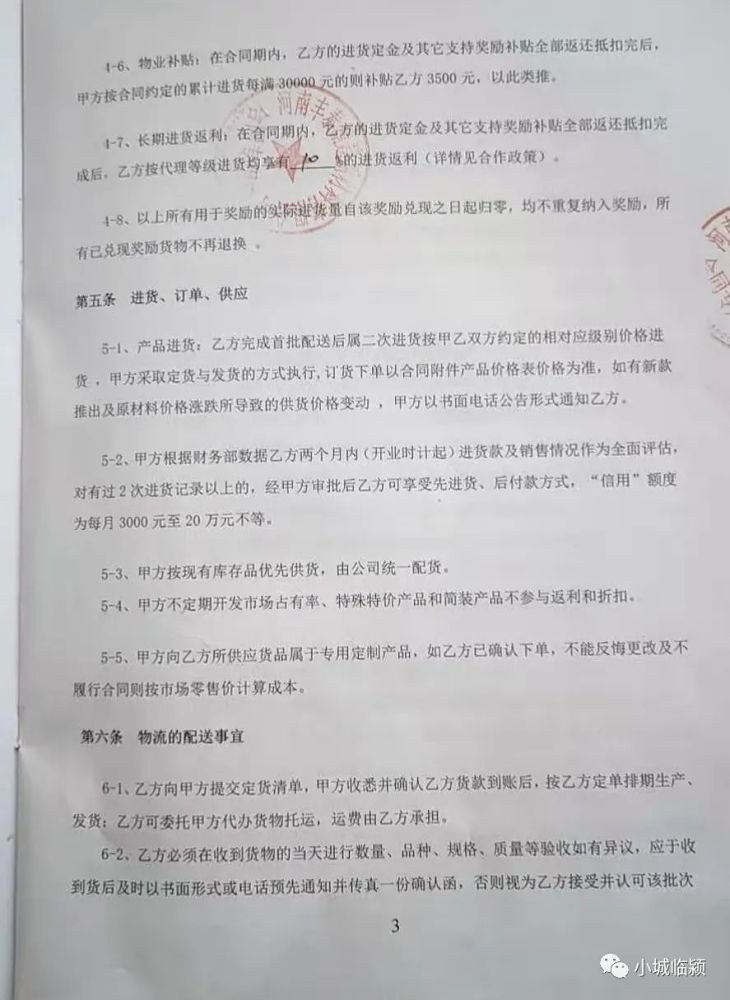 4-6、物业补贴：在合同期内，乙方的进货定金及其它支持奖励补贴全部返还抵扣完后，
甲方按合同约定的累计进货每满 30000 元的则补贴乙方 3500 元，以此类推。
4-7、长期进货返利：在合同期内，乙方的进货定金及其它支持奖励补贴全部返还抵扣完
成后，乙方按代理等级进货均享有 10 %的进货返利（详情见合作政策）。
4-8、以上所有用于奖励的实际进货量自该奖励兑现之日起归零，均不重复纳入奖励，所
有已兑现奖励货物不再退换 。
河南丰
第五条 进货、订单、供应
合同专
5-1、产品进货：乙方完成首批配送后属二次进货按甲乙双方约定的相对应级别价格进
货 ，甲方采取定货与发货的方式执行,订货下单以合同附件产品价格表价格为准，如有新款
推出及原材料价格涨跌所导致的供货价格变动 ，甲方以书面电话公告形式通知乙方。
5-2、甲方根据财务部数据乙方两个月内（开业时计起）进货款及销售情况作为全面评估，
对有过 2 次进货记录以上的，经甲方审批后乙方可享受先进货、后付款方式，“信用”额度
为每月 3000 元至 20 万元不等。
5-3、甲方按现有库存品优先供货，由公司统一配货。
5-4、甲方不定期开发市场占有率、特殊特价产品和简装产品不参与返利和折扣。
5-5、甲方向乙方所供应货品属于专用定制产品，如乙方已确认下单，不能反悔更改及不
履行合同则按市场零售价计算成本。
第六条 物流的配送事宜
6-1、乙方向甲方提交定货清单，甲方收悉并确认乙方货款到账后，按乙方定单排期生产、
发货；乙方可委托甲方代办货物托运，运费由乙方承担。
6-2、乙方必须在收到货物的当天进行数量、品种、规格、质量等验收如有异议，应于收
到货后及时以书面形式或电话预先通知并传真一份确认函，否则视为乙方接受并认可该批次
3
小城临颍